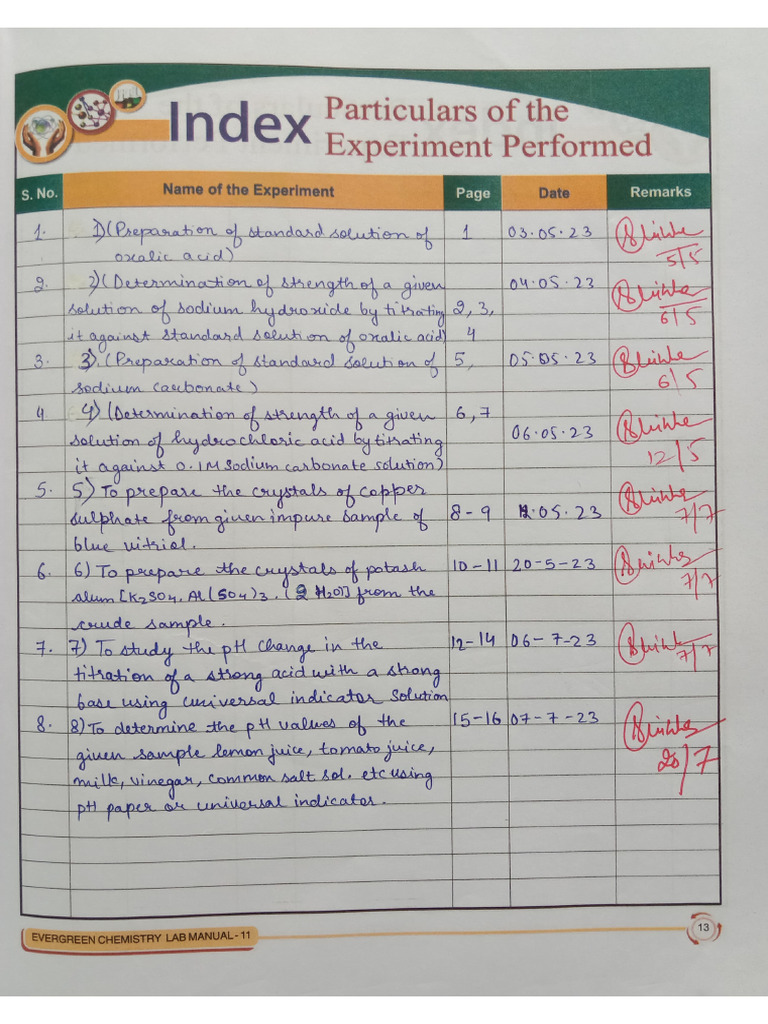 Index Particulars of the
Experiment Performed
S. No. Name of the Experiment Page Date Remarks
1. 1) (Preparation of standard solution of 1 03.05.23
oxalic acid) 5/5
2. 2) (Determination of strength of a given 04.05.23
solution of sodium hydroxide by titrating 2, 3,
it against standard solution of oxalic acid) 4 6/5
3. 3). (Preparation of standard solution of 5, 05.05.23
sodium carbonate) 6/5
4 4) (Determination of strength of a given 6, 7
solution of hydrochloric acid by titrating 06.05.23
it against 0.1M Sodium carbonate solution) 12/5
5. 5) To prepare the crystals of copper
sulphate from given impure sample of 8-9 .05.23 7/7
blue vitriol.
6. 6) To prepare the crystals of potash 10-11 20-5-23
alum [K2SO4. Al(SO4)3. (2 H2O] from the 7/7
crude sample.
7. 7) To study the pH change in the 12-14 06-7-23
titration of a strong acid with a strong 7/7
base using universal indicator solution
8. 8) To determine the pH values of the 15-16 07-7-23
given sample lemon juice, tomato juice,
milk, vinegar, common salt sol. etc using 20/7
pH paper or universal indicator.
EVERGREEN CHEMISTRY LAB MANUAL-11 13